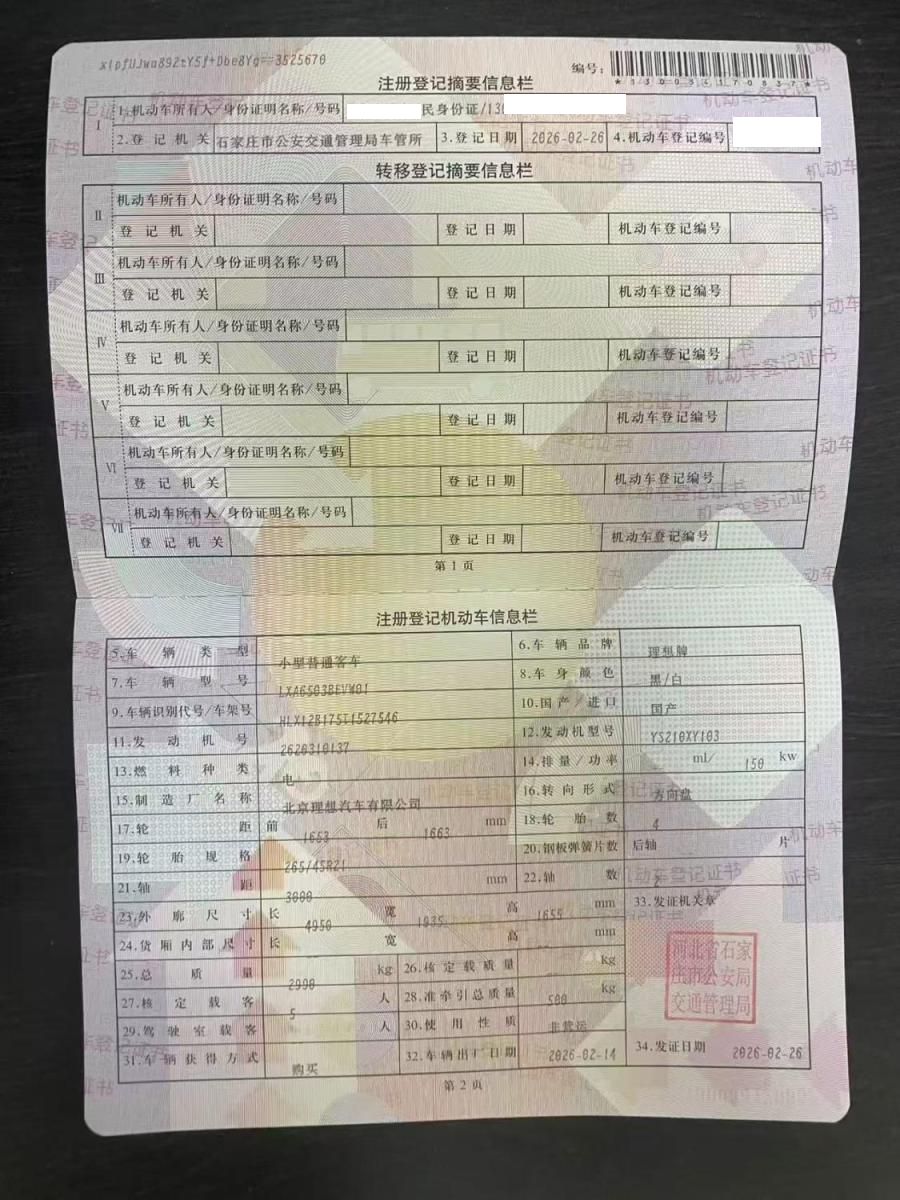 xlpfUJwa892tY5f+Dbe8Yg==3525670
编号:
注册登记摘要信息栏
I
1.机动车所有人/身份证明名称/号码 民身份证/13
2.登记机关 石家庄市公安交通管理局车管所 3.登记日期 2026-02-26 4.机动车登记编号
转移登记摘要信息栏
II
机动车所有人/身份证明名称/号码
登记机关 登记日期 机动车登记编号
III
机动车所有人/身份证明名称/号码
登记机关 登记日期 机动车登记编号
IV
机动车所有人/身份证明名称/号码
登记机关 登记日期 机动车登记编号
V
机动车所有人/身份证明名称/号码
登记机关 登记日期 机动车登记编号
VI
机动车所有人/身份证明名称/号码
登记机关 登记日期 机动车登记编号
VII
机动车所有人/身份证明名称/号码
登记机关 登记日期 机动车登记编号
第1页
注册登记机动车信息栏
5.车辆类型 小型普通客车 6.车辆品牌 理想牌
7.车辆型号 LXA6503BEVW01 8.车身颜色 黑/白
9.车辆识别代号/车架号 10.国产/进口 国产
11.发动机号 2620310137 12.发动机型号 YS210XY103
13.燃料种类 电 14.排量/功率 ml/ 150 kw
15.制造厂名称 北京理想汽车有限公司 16.转向形式 方向盘
17.轮距 前 1653 后 1663 mm 18.轮胎数 4
19.轮胎规格 265/45R21 20.钢板弹簧片数 后轴 片
21.轴距 3000 mm 22.轴数 2
23.外廓尺寸 长 4950 宽 1935 高 1655 mm 33.发证机关章
24.货厢内部尺寸 长 宽 高 mm
25.总质量 2990 kg 26.核定载质量 kg
27.核定载客 5 人 28.准牵引总质量 500 kg
29.驾驶室载客 人 30.使用性质 非营运
31.车辆获得方式 购买 32.车辆出厂日期 2026-02-14 34.发证日期 2026-02-26
河北省石家
庄市公安局
交通管理局
第2页